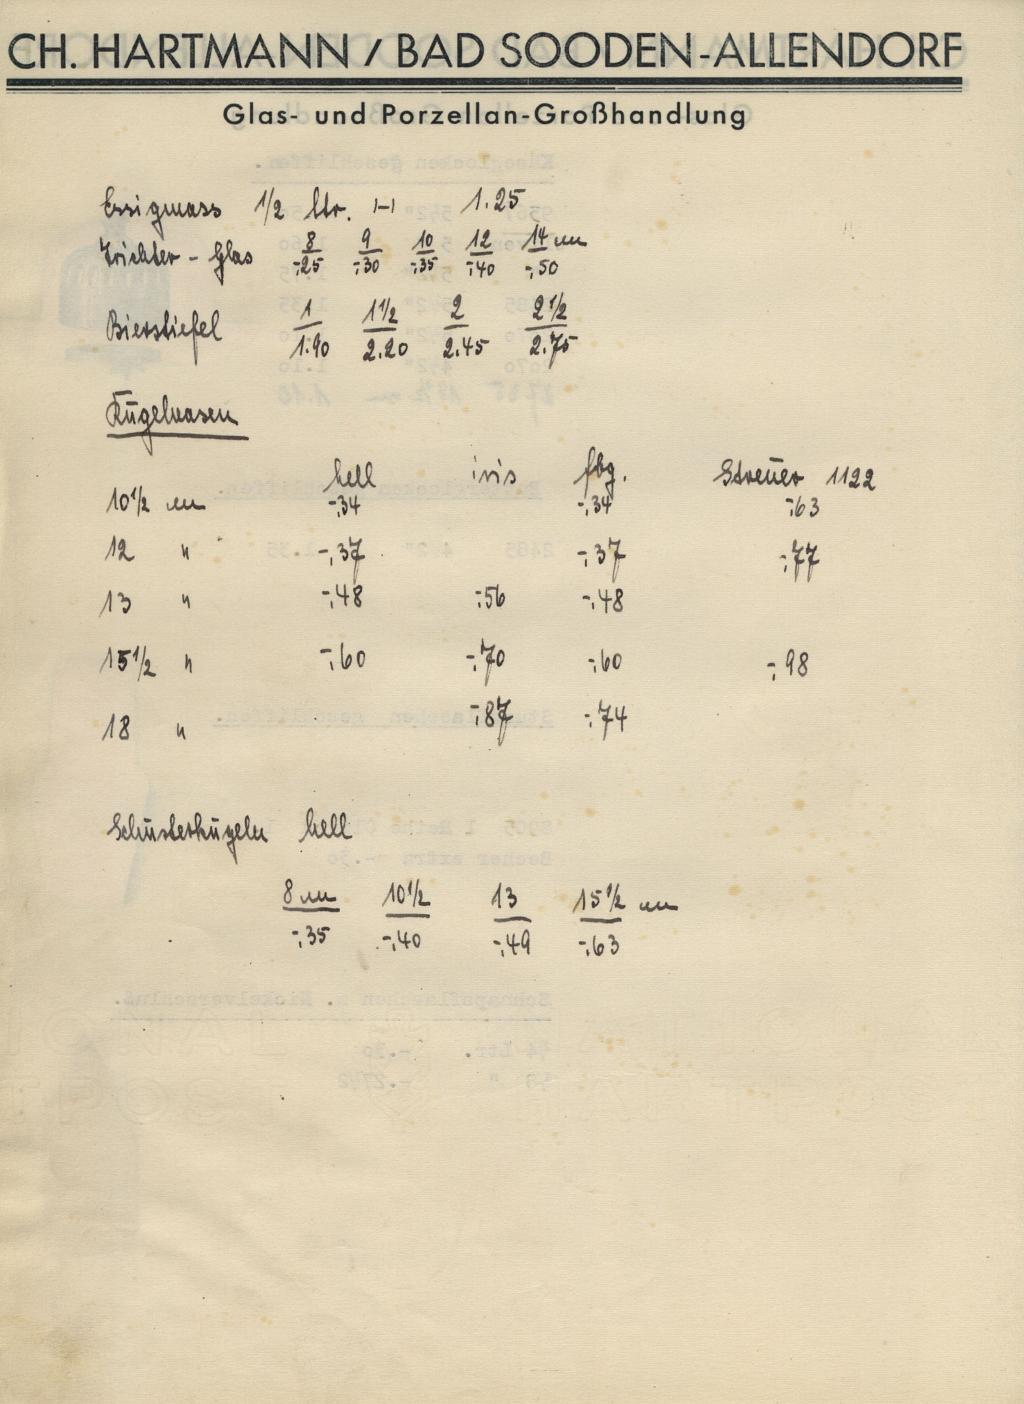 CH. HARTMANN / BAD SOODEN-ALLENDORF
Glas- und Porzellan-Großhandlung
Essigmass 1/2 ltr. I-I 1.25
Trichter - Glas 8 9 10 12 14 cm
-,25 -,30 -,35 -,40 -,50
Bierstiefel 1 1 1/2 2 2 1/2
1.90 2.20 2.45 2.75
Kugelvasen
hell iris fbg. Streuer 1122
10 1/2 cm -,34 -,34 -,63
12 " -,37 -,37 -,77
13 " -,48 -,56 -,48
15 1/2 " -,60 -,70 -,60 -,98
18 " -,87 -,74
Schusterkugeln hell
8 cm 10 1/2 13 15 1/2 cm
-,35 -,40 -,49 -,63